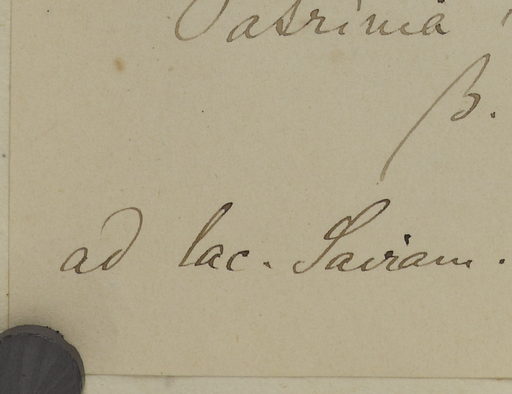 Patrinia
β.
ad lac. Sairam.